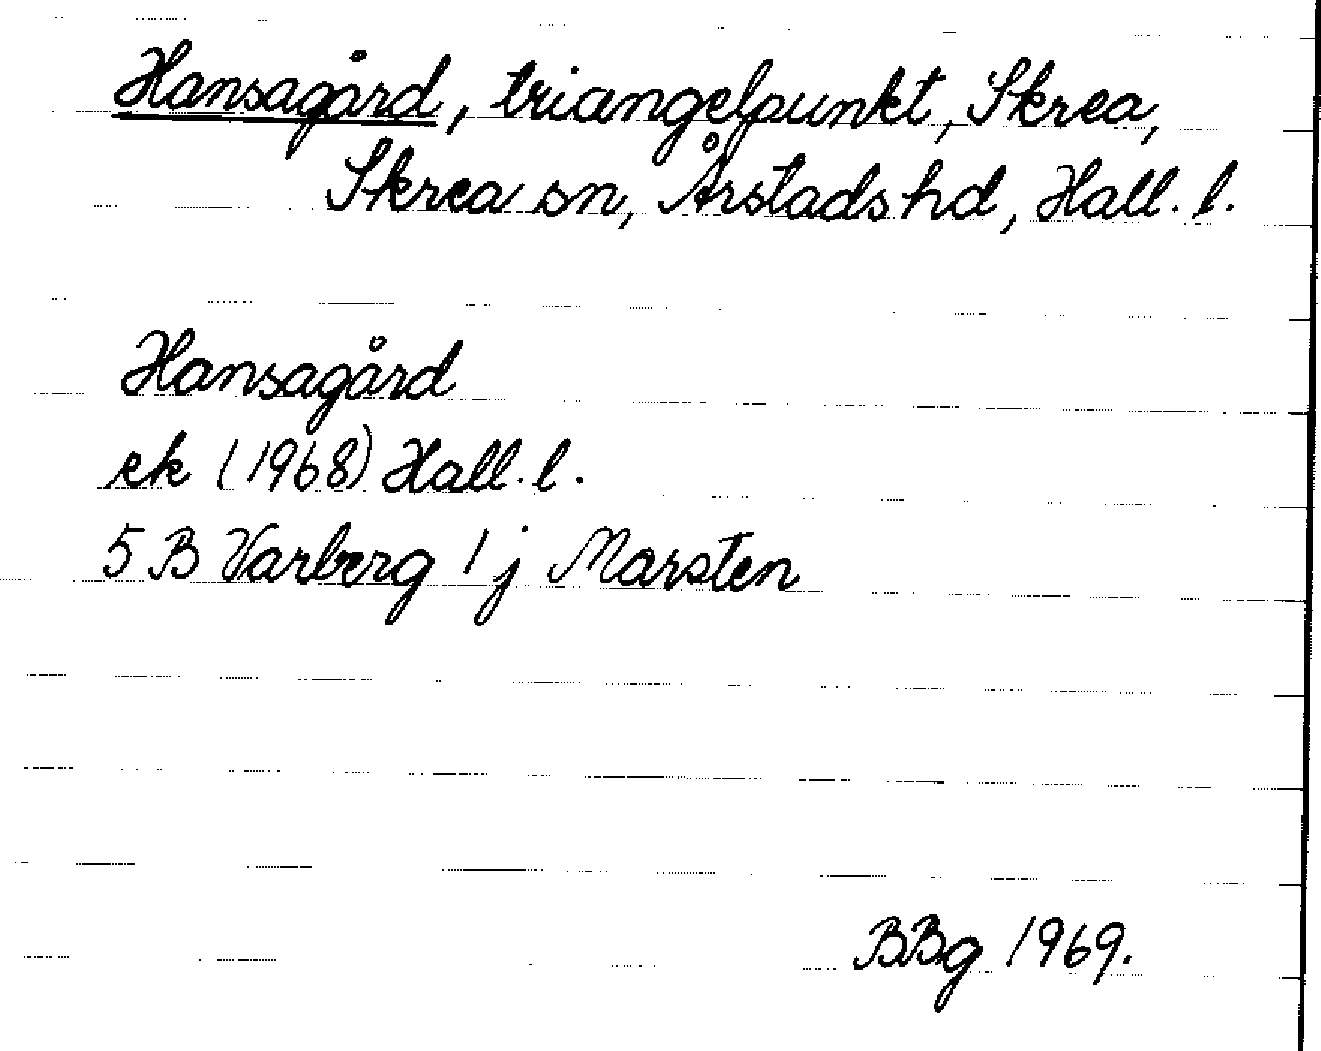 Hansagård, triangelpunkt, Skrea,
Skrea sn, Årstads hd, Hall. l.
Hansagård
ek (1968) Hall. l.
5 B Varberg 1 j Marsten
BBg 1969.